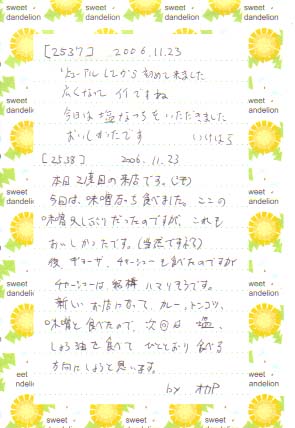 sweet dandelion
[2537] 2006.11.23
リニューアルしてから初めて来ました
広くなって イイですね
今日は塩なっちをいただきました
おいしかったです
[2538] 2006.11.23
本日2度目の来店です。
今回は、味噌 食べました。ここの
味噌久しぶりだったのですが、これも
おいしかったです。(当然ですよね)
後、ギョーザ、チャーシューも食べたのですが
チャーシューは、結構ハマリそうです。
新しいお店になって、カレー、トンコツ、
味噌と食べたので、次回は 塩、
しょう油を食べて ひととおり食べる
方向にしようと思います。
by オカP